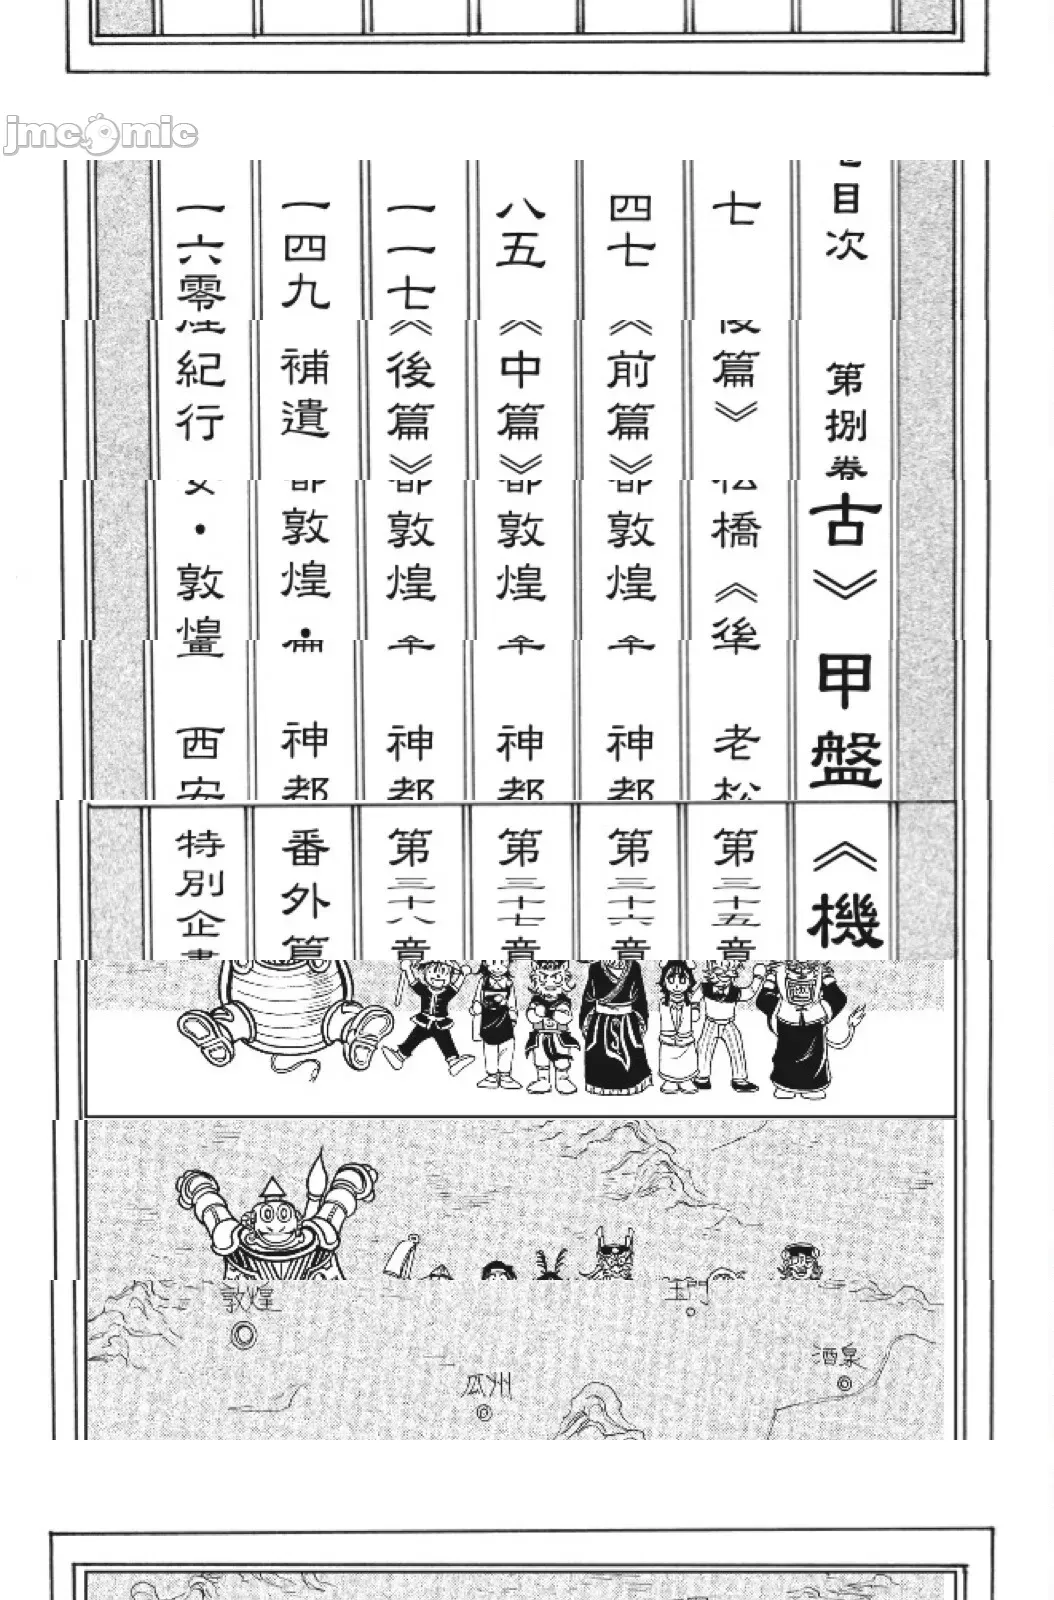 目次 第捌卷 古》 甲盤 《機
七 篇》 橋《後 老松 第三十五章
四七 《前篇》 敦煌 神都 第三十六章
八五 《中篇》 敦煌 神都 第三十七章
一一七 《後篇》 敦煌 神都 第三十八章
一四九 補遺 敦煌・ 神都 番外篇
一六零 紀行 ・敦煌 西安 特別企畫
玉門
酒泉
敦煌
瓜州
jmcomic